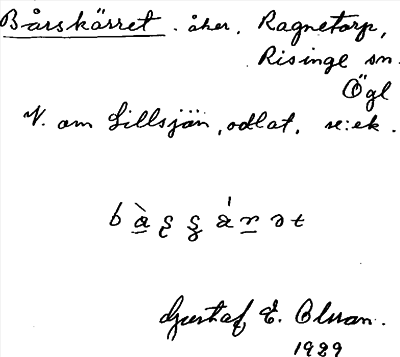 Bårskärret. åker. Ragnetorp,
Risinge sn.
Ögl
V. om Lillsjön, odlat.
Gustaf E. Olsson.
1929